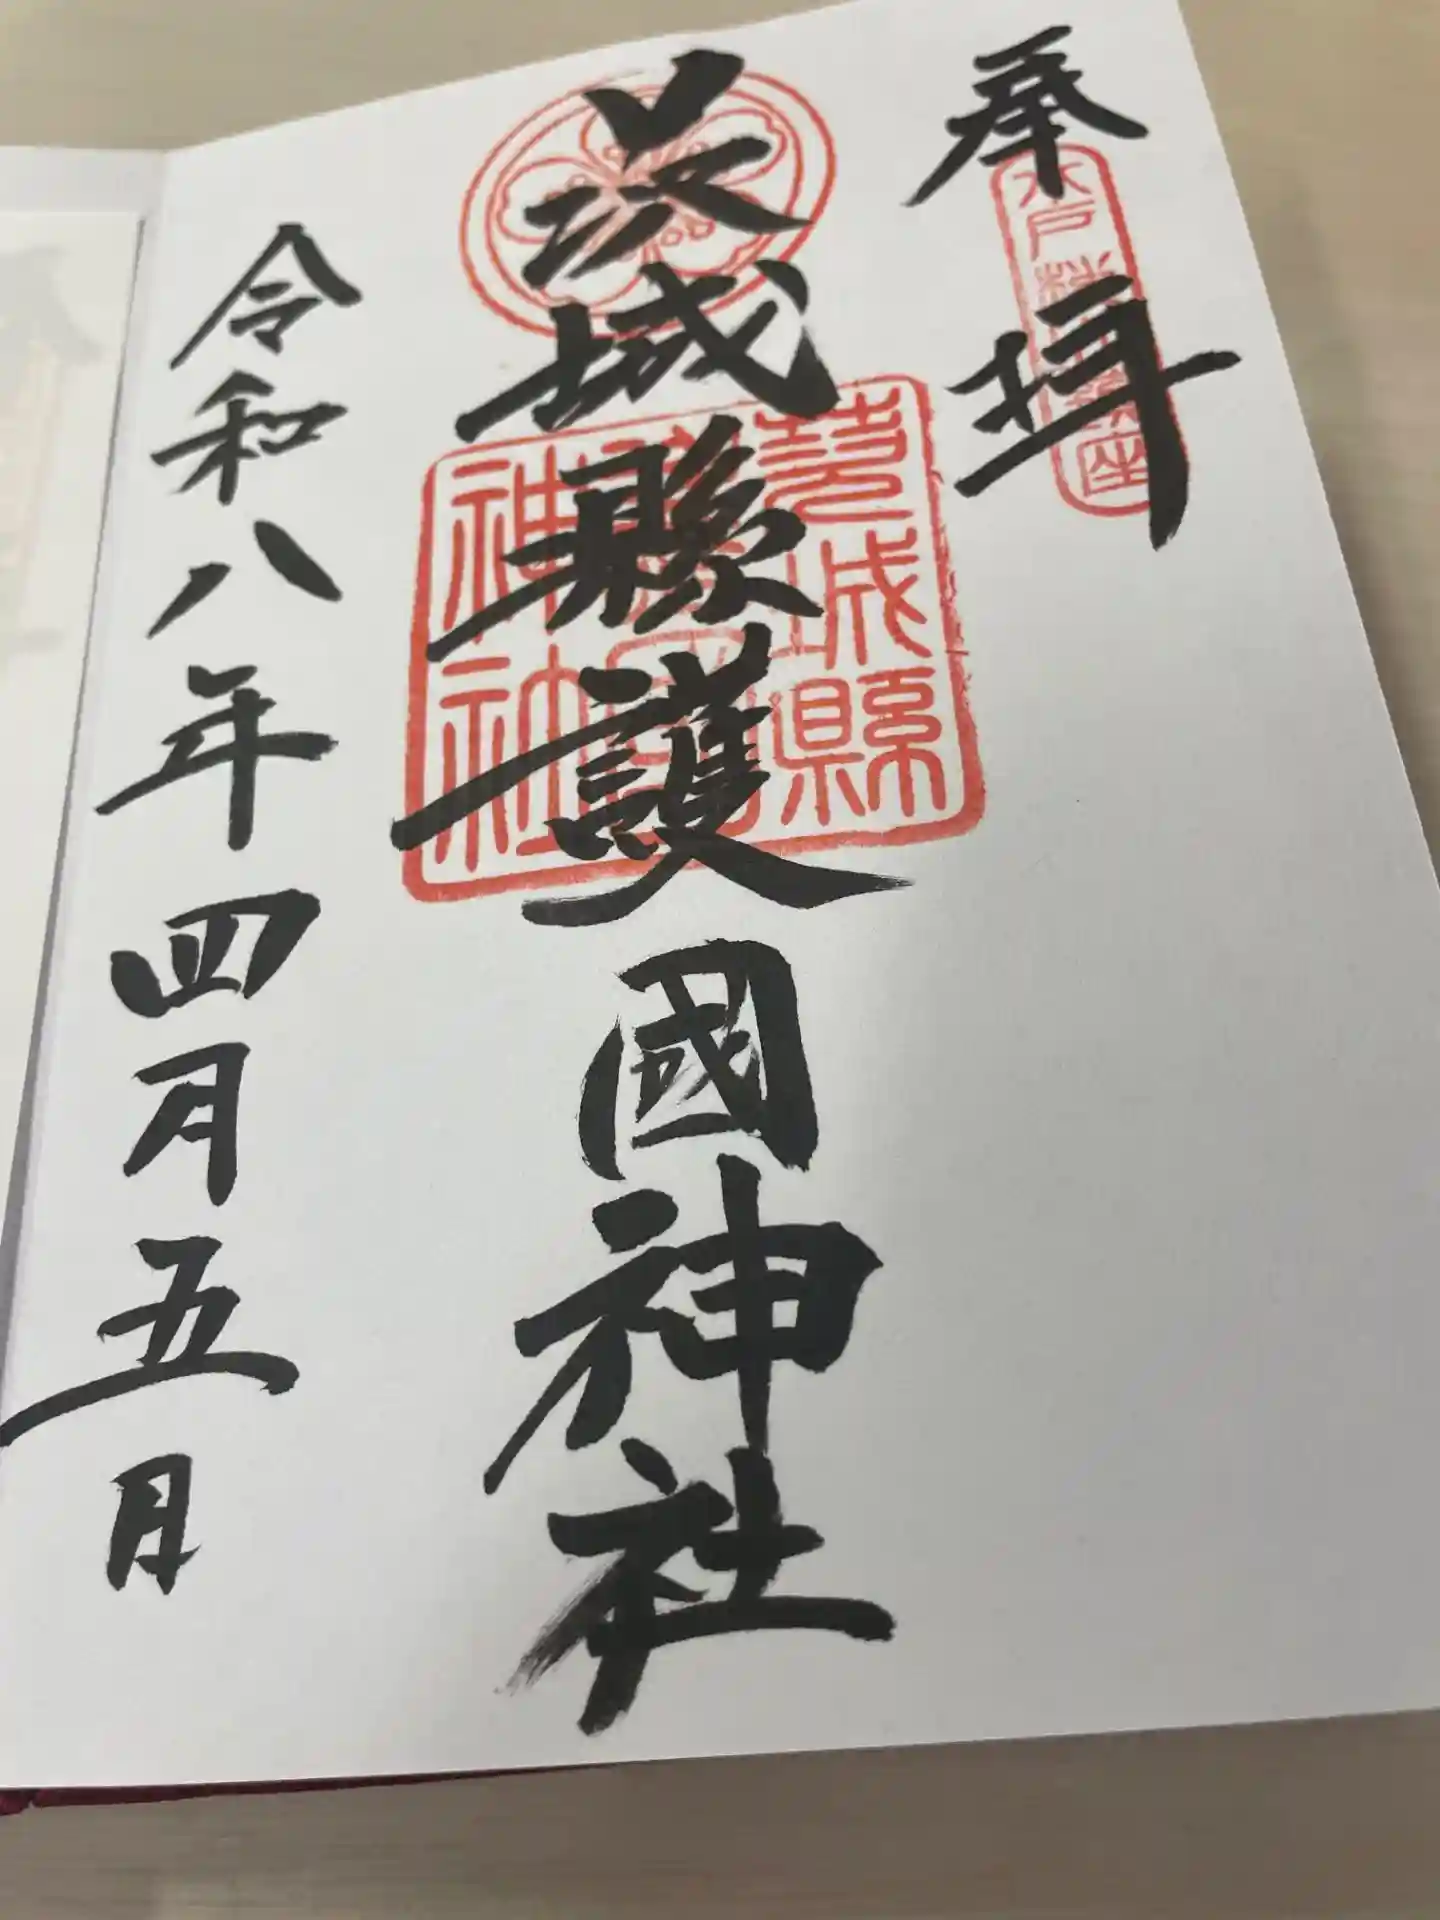 奉拝
水戸桜山鎮座
茨城縣護國神社
茨城縣護國神社
令和八年四月五日